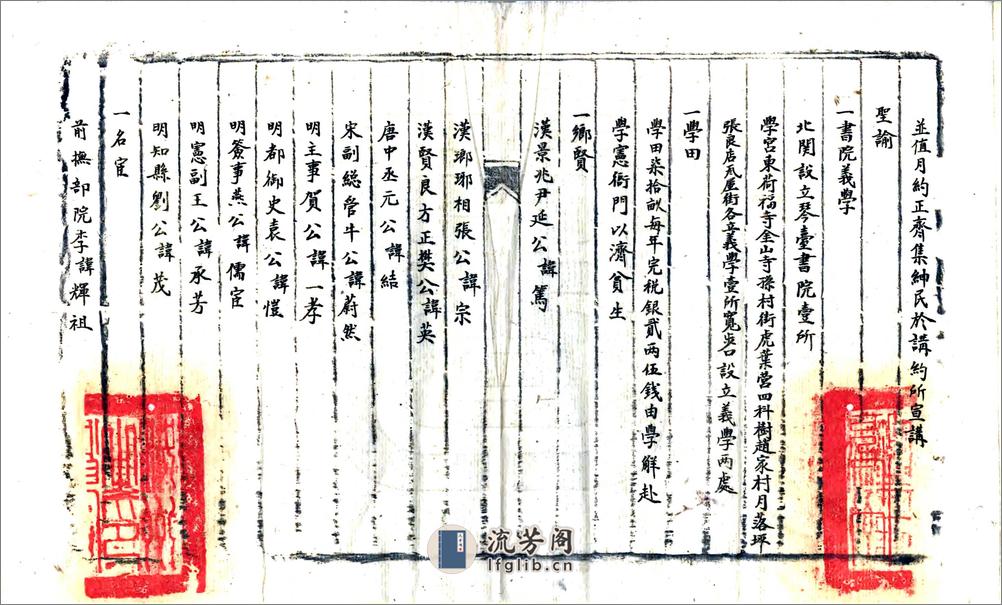 並值月約正齊集紳民於講約所宣講
聖諭
一書院義學
北関設立琴臺書院壹所
學宮東荷福寺全山寺孫村街虎葉营四科樹趙家村月落坪
張良店瓦屋街各立義學壹所寬步口設立義學两處
一學田
學田柒拾畝每年完稅銀貳两伍钱由學觧赴
學憲衙門以濟貧生
一鄉賢
漢景兆尹延公諱篤
漢瑯琊相張公諱宗
漢賢良方正樊公諱英
唐中丞元公諱結
宋副総管牛公諱蔚然
明主事賀公諱一孝
明都御史袁公諱愷
明簽事燕公諱儒宦
明憲副王公諱承芳
明知縣劉公諱茂
一名宦
前撫部院李諱輝祖
流芳阁
lfglib.cn